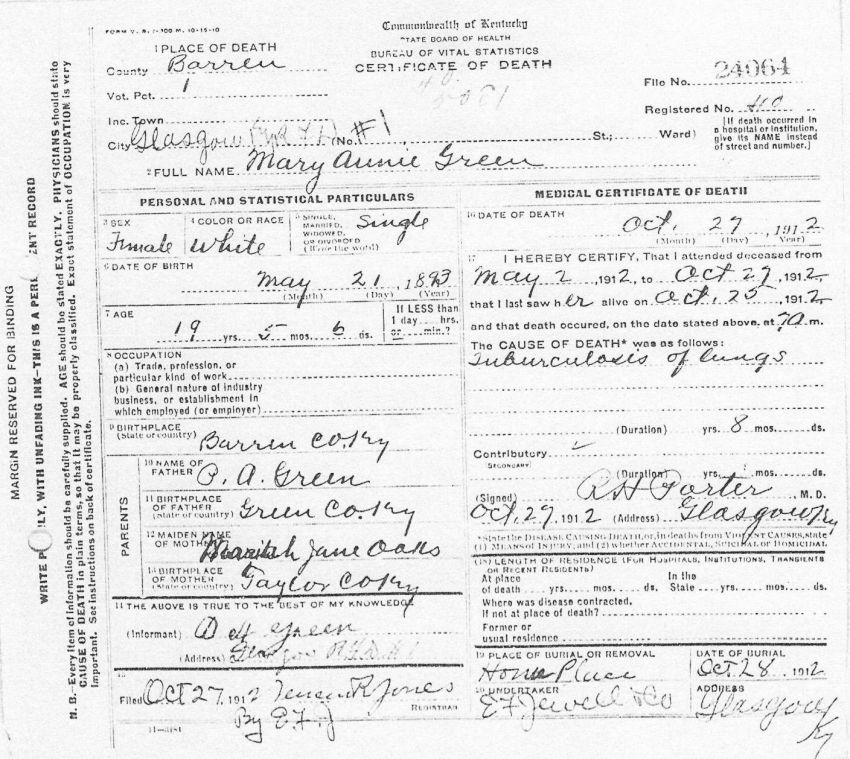 FORM V. S. 1-100 M. 10-15-10
Commonwealth of Kentucky
STATE BOARD OF HEALTH
BUREAU OF VITAL STATISTICS
CERTIFICATE OF DEATH
1 PLACE OF DEATH
County Barren
Vot. Pct. 1
Inc. Town
City Glasgow (No. #1 St.; Ward)
File No. 24064
Registered No. 40
[If death occurred in a hospital or institution, give its NAME instead of street and number.]
2 FULL NAME Mary Annie Green
PERSONAL AND STATISTICAL PARTICULARS
3 SEX
Female
4 COLOR OR RACE
White
5 SINGLE, MARRIED, WIDOWED, OR DIVORCED (Write the word)
Single
6 DATE OF BIRTH
May 21, 1893
(Month) (Day) (Year)
7 AGE
19 yrs. 5 mos. 6 ds.
If LESS than 1 day ... hrs. or ... min.?
8 OCCUPATION
(a) Trade, profession, or
particular kind of work
(b) General nature of industry
business, or establishment in
which employed (or employer)
9 BIRTHPLACE
(State or country) Barren Co Ky
PARENTS
10 NAME OF FATHER P. A. Green
11 BIRTHPLACE OF FATHER (State or country) Green Co Ky
12 MAIDEN NAME OF MOTHER Mariah Jane Oaks
13 BIRTHPLACE OF MOTHER (State or country) Taylor Co Ky
14 THE ABOVE IS TRUE TO THE BEST OF MY KNOWLEDGE
(Informant) Green
(Address) Glasgow
15
Filed Oct 27, 1912 R Jones
REGISTRAR
By E. F. J
11-3181
MEDICAL CERTIFICATE OF DEATH
16 DATE OF DEATH
Oct. 27, 1912
(Month) (Day) Year)
17 I HEREBY CERTIFY, That I attended deceased from
May 2, 1912, to Oct 27, 1912,
that I last saw her alive on Oct. 25, 1912,
and that death occured, on the date stated above, at 7 a m.
The CAUSE OF DEATH* was as follows:
Tuburculosis of lungs
(Duration) yrs. 8 mos. ds.
Contributory
(SECONDARY)
(Duration) yrs. mos. ds.
(Signed) R H Porter M. D.
Oct. 27, 1912 (Address) Glasgow Ky
*State the DISEASE CAUSING DEATH, or, in deaths from VIOLENT CAUSES, state
(1) MEANS OF INJURY, and (2) whether ACCIDENTAL, SUICIDAL, OR HOMICIDAL.
(18) LENGTH OF RESIDENCE (FOR HOSPITALS, INSTITUTIONS, TRANSIENTS
OR RECENT RESIDENTS)
At place of death yrs. mos. ds. In the State yrs. mos. ds.
Where was disease contracted,
if not at place of death?
Former or
usual residence
19 PLACE OF BURIAL OR REMOVAL
Home Place
DATE OF BURIAL
Oct 28, 1912
20 UNDERTAKER
E F Jewell & Co
ADDRESS
Glasgow Ky
MARGIN RESERVED FOR BINDING
WRITE P ILY, WITH UNFADING INK—THIS IS A PER ENT RECORD
N. B.—Every item of information should be carefully supplied. AGE should be stated EXACTLY. PHYSICIANS should state
CAUSE OF DEATH in plain terms, so that it may be properly classified. Exact statement of OCCUPATION is very
important. See instructions on back of certificate.